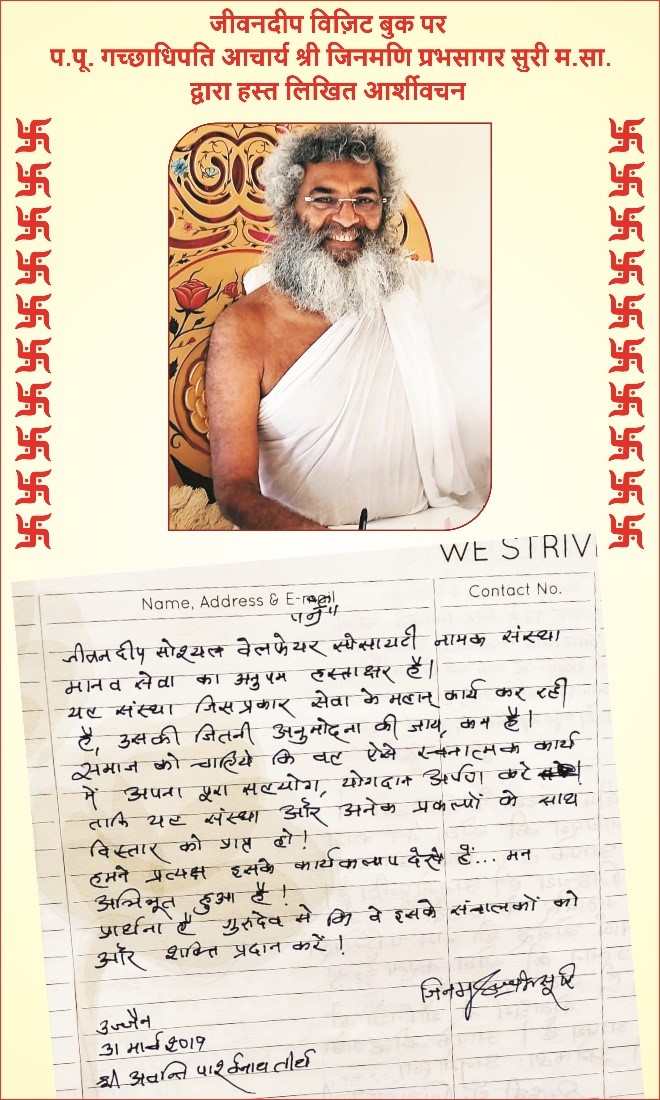 जीवनदीप विज़िट बुक पर
प.पू. गच्छाधिपति आचार्य श्री जिनमणि प्रभसागर सुरी म.सा.
द्वारा हस्त लिखित आर्शीवचन
WE STRIV
Name, Address & E-mail
Contact No.
जीवनदीप सोश्यल वेलफेयर सोसायटी नामक संस्था
मानव सेवा का अनुपम हस्ताक्षर है।
यह संस्था जिस प्रकार सेवा के महान् कार्य कर रही
है, उसकी जितनी अनुमोदना की जाय, कम है।
समाज को चाहिये कि वह ऐसे रचनात्मक कार्य
में अपना पूरा सहयोग, योगदान अर्पण करे
ताकि यह संस्था और अनेक प्रकल्पों के साथ
विस्तार को प्राप्त हो!
हमने प्रत्यक्ष इसके कार्यकलाप देखे हैं... मन
अभिभूत हुआ है!
प्रार्थना है गुरुदेव से कि वे इसके संचालकों को
और शक्ति प्रदान करें!
उज्जैन
31 मार्च 2019
श्री अवन्ति पार्श्वनाथ तीर्थ